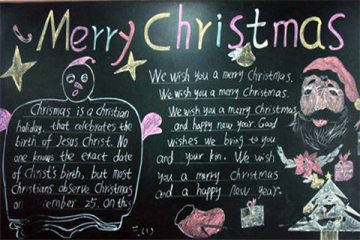 Merry Christmas
Chrismas is a christian
holiday, that celebrates the
birth of Jesus Christ. No
one knows the exact date
of Christ's birth, but most
christians observe Christmas
on cember 25. on this
We wish you a merry Christmas.
We wish you a merry Christmas.
We wish you a marry christmas
and happy new year. Good
wishes we bring to you
and your kin. We wish
you a merry christmas
and a happy new year.